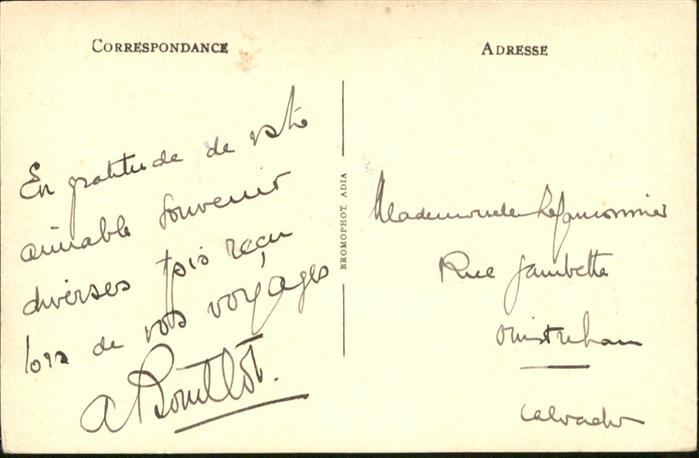 CORRESPONDANCE
En gratitude de votre
aimable souvenir
diverses fois reçu
lors de vos voyages
A Bouillot.
BROMOPHOT, ADIA
ADRESSE
Mademoiselle
Rue Gambetta
Ouistreham
Calvados